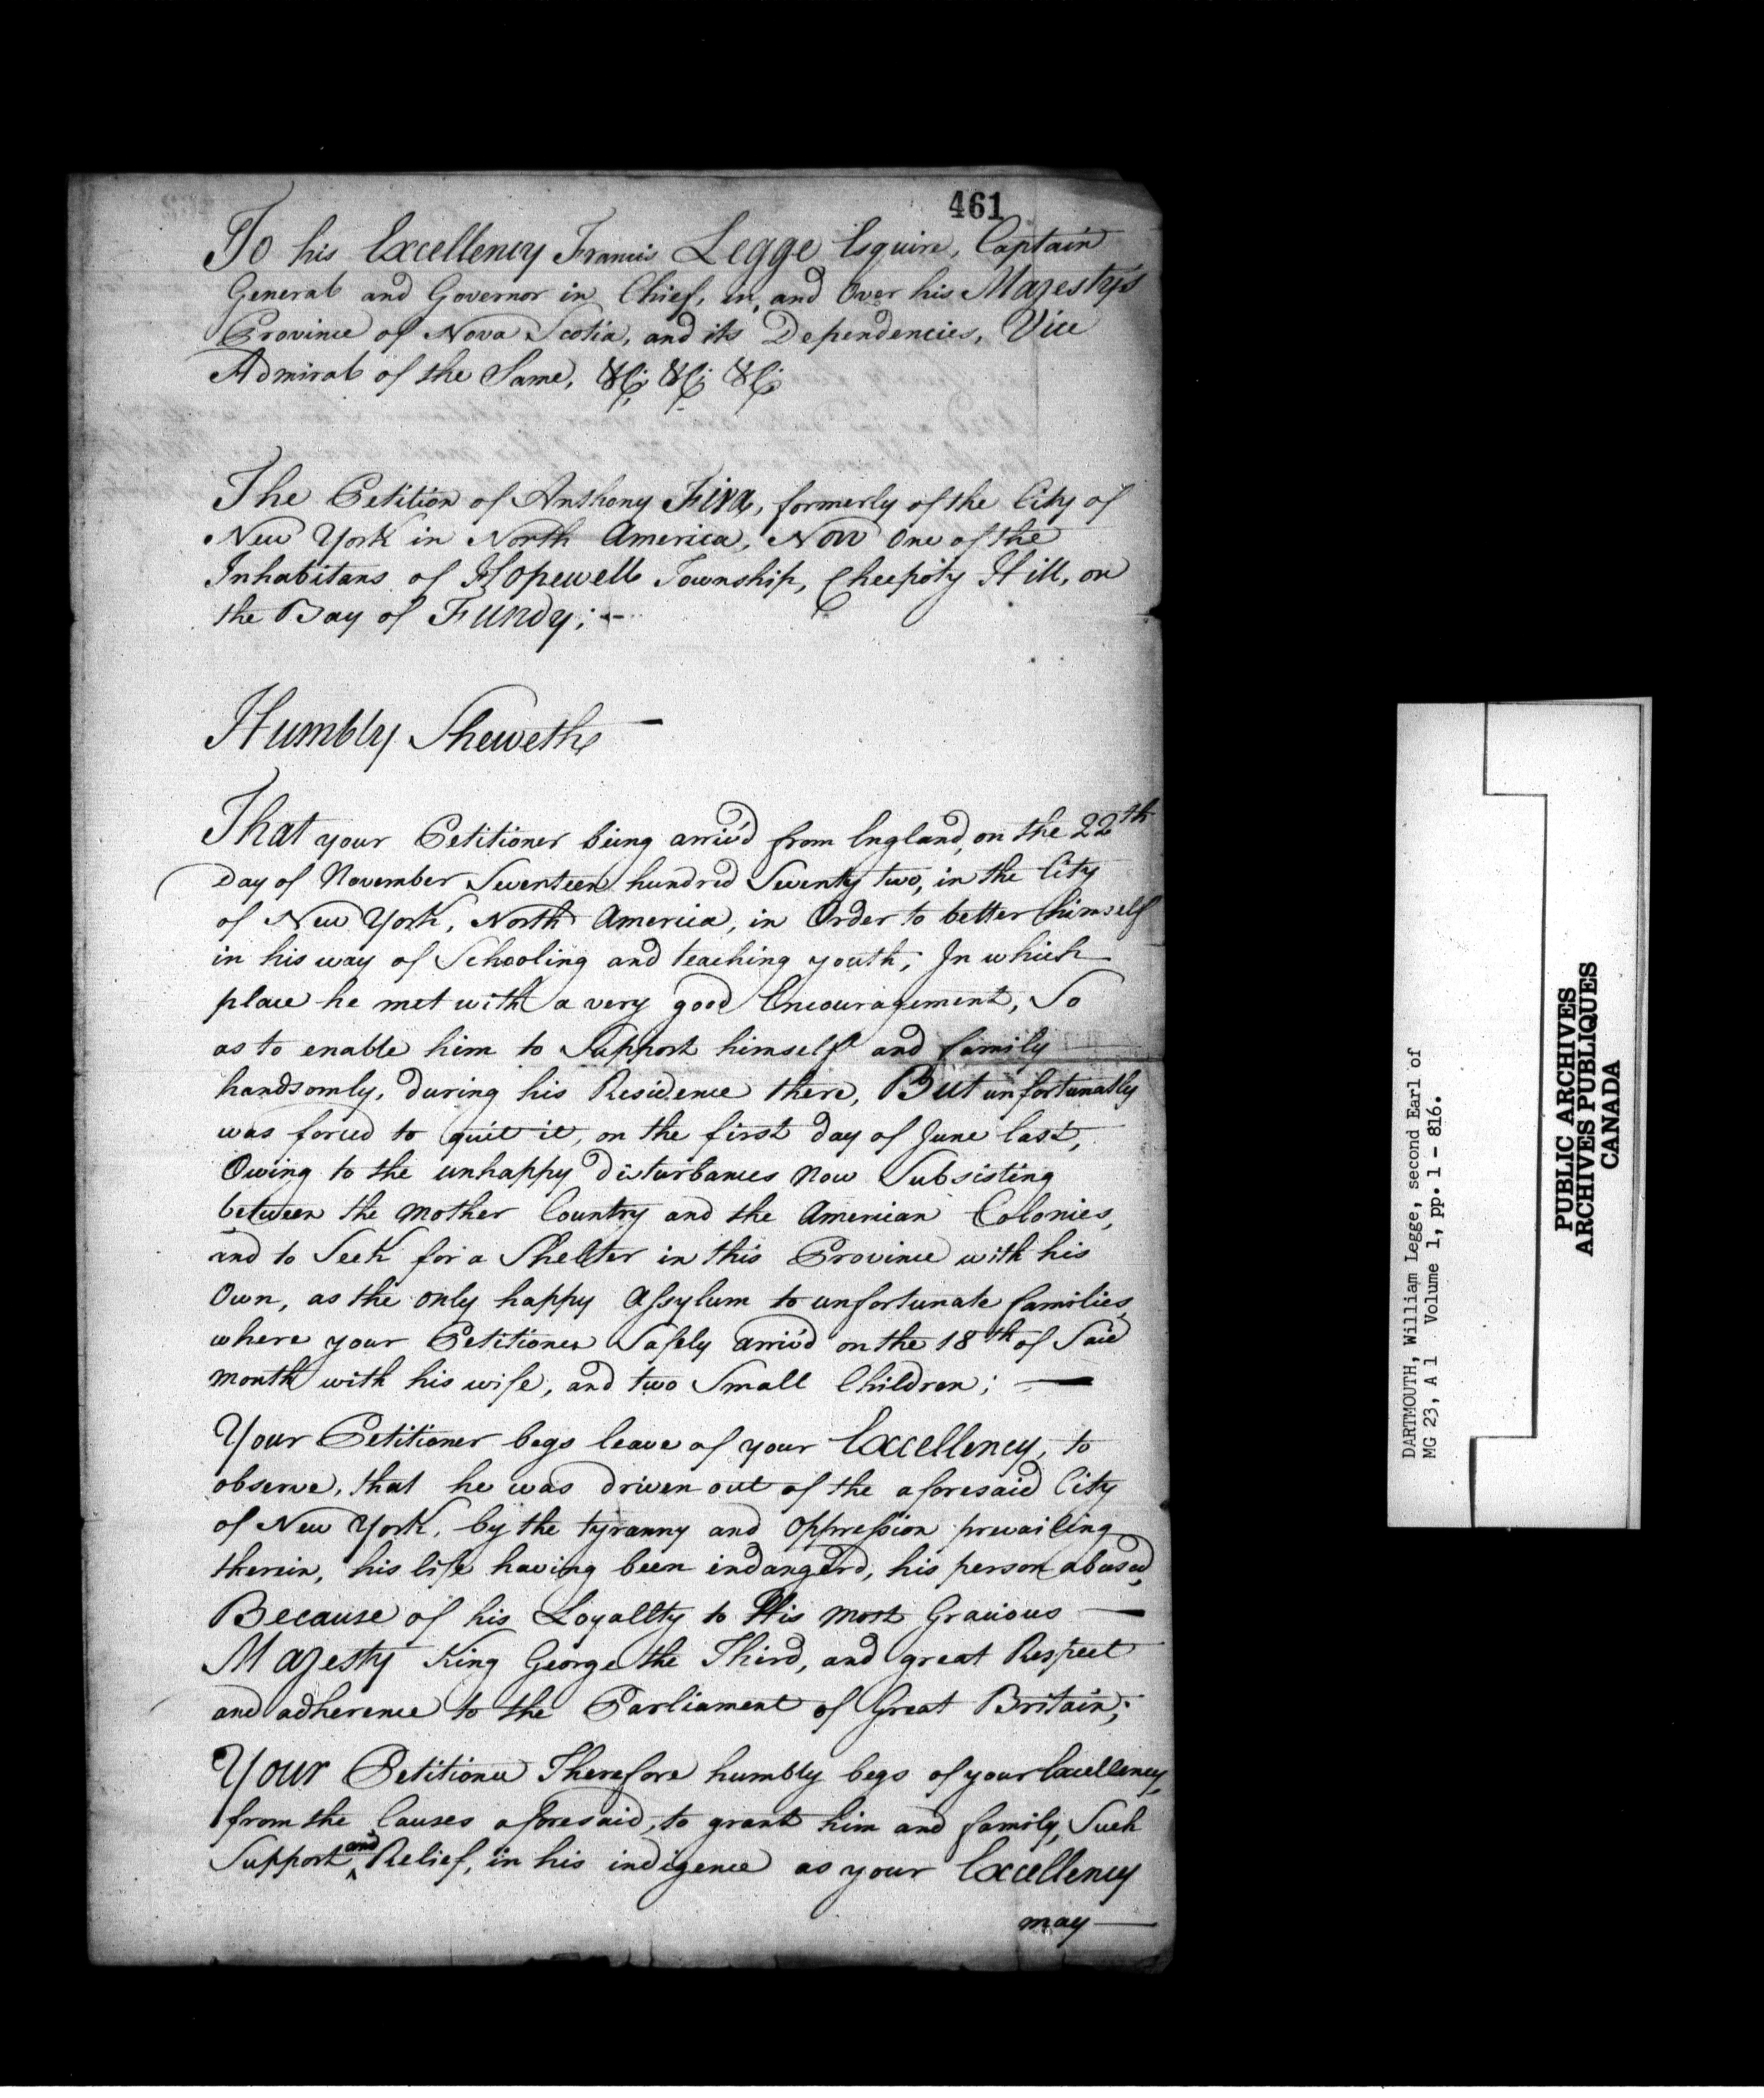 461
To his Excellency Francis Legge Esquire, Captain
General and Governor in Chief, in, and Over his Majesty's
Province of Nova Scotia, and its Dependencies, Vice
Admiral of the Same, &c; &c; &c;
The Petition of Anthony Fiva, formerly of the City of
New York in North America, Now One of the
Inhabitans of Hopewell Township, Cheepoty Hill, on
the Bay of Fundy; -
Humbly Sheweth —
That your Petitioner being arriv'd from England, on the 22th
Day of November Seventeen hundred Seventy two, in the City
of New York, North America, in Order to better himself
in his way of Schooling and teaching youth; In which
place he met with a very good Encouragement, So
as to enable him to Support himself and family
handsomly, during his Residence there, But unfortunatly
was forced to quit it, on the first day of June last,
Owing to the unhappy disturbances Now Subsisting
between the Mother Country and the American Colonies,
and to Seek for a Shelter in this Province with his
Own, as the only happy Assylum to unfortunate families,
where your Petitioner Safely arriv'd on the 18th of Said
Month with his wife, and two Small Children; —
Your Petitioner begs leave of your Excellency, to
observe, that he was driven out of the aforesaid City
of New York, by the tyranny and Oppression prevailing
therein, his life having been indanger'd, his person abused,
Because of his Loyallty to His Most Gracious —
Majesty King George the Third, and great Respect
and adherence to the Parliament of Great Britain;
Your Petitioner Therefore humbly begs of your Excellency,
from the Causes aforesaid, to grant him and family, Such
Support and Relief, in his indigence as your Excellency
may —
DARTMOUTH, William Legge, second Earl of
MG 23, A 1 Volume 1, pp. 1 - 816.
PUBLIC ARCHIVES
ARCHIVES PUBLIQUES
CANADA